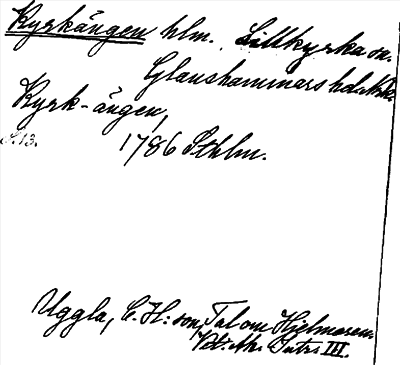 Kyrkängen hlm. Lillkyrka sn.
Glanshammars hd.
Kyrk-ängen,
S. 13. 1786 Sthlm.
Uggla, C. H:son, Tal om Hjelmaren.
Vet. Ak. Intr. III.